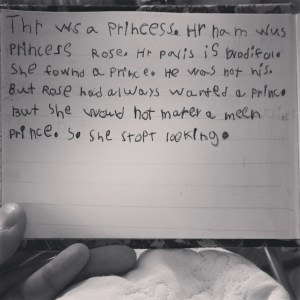 Thr ws a princess. Hr nam wus
princess Rose. Hr palis is brodifol.
She fownd a prince. He was not nis.
But Rose had always wanted a prince
But she woud not marer a meen
prince. So she stopt looking.